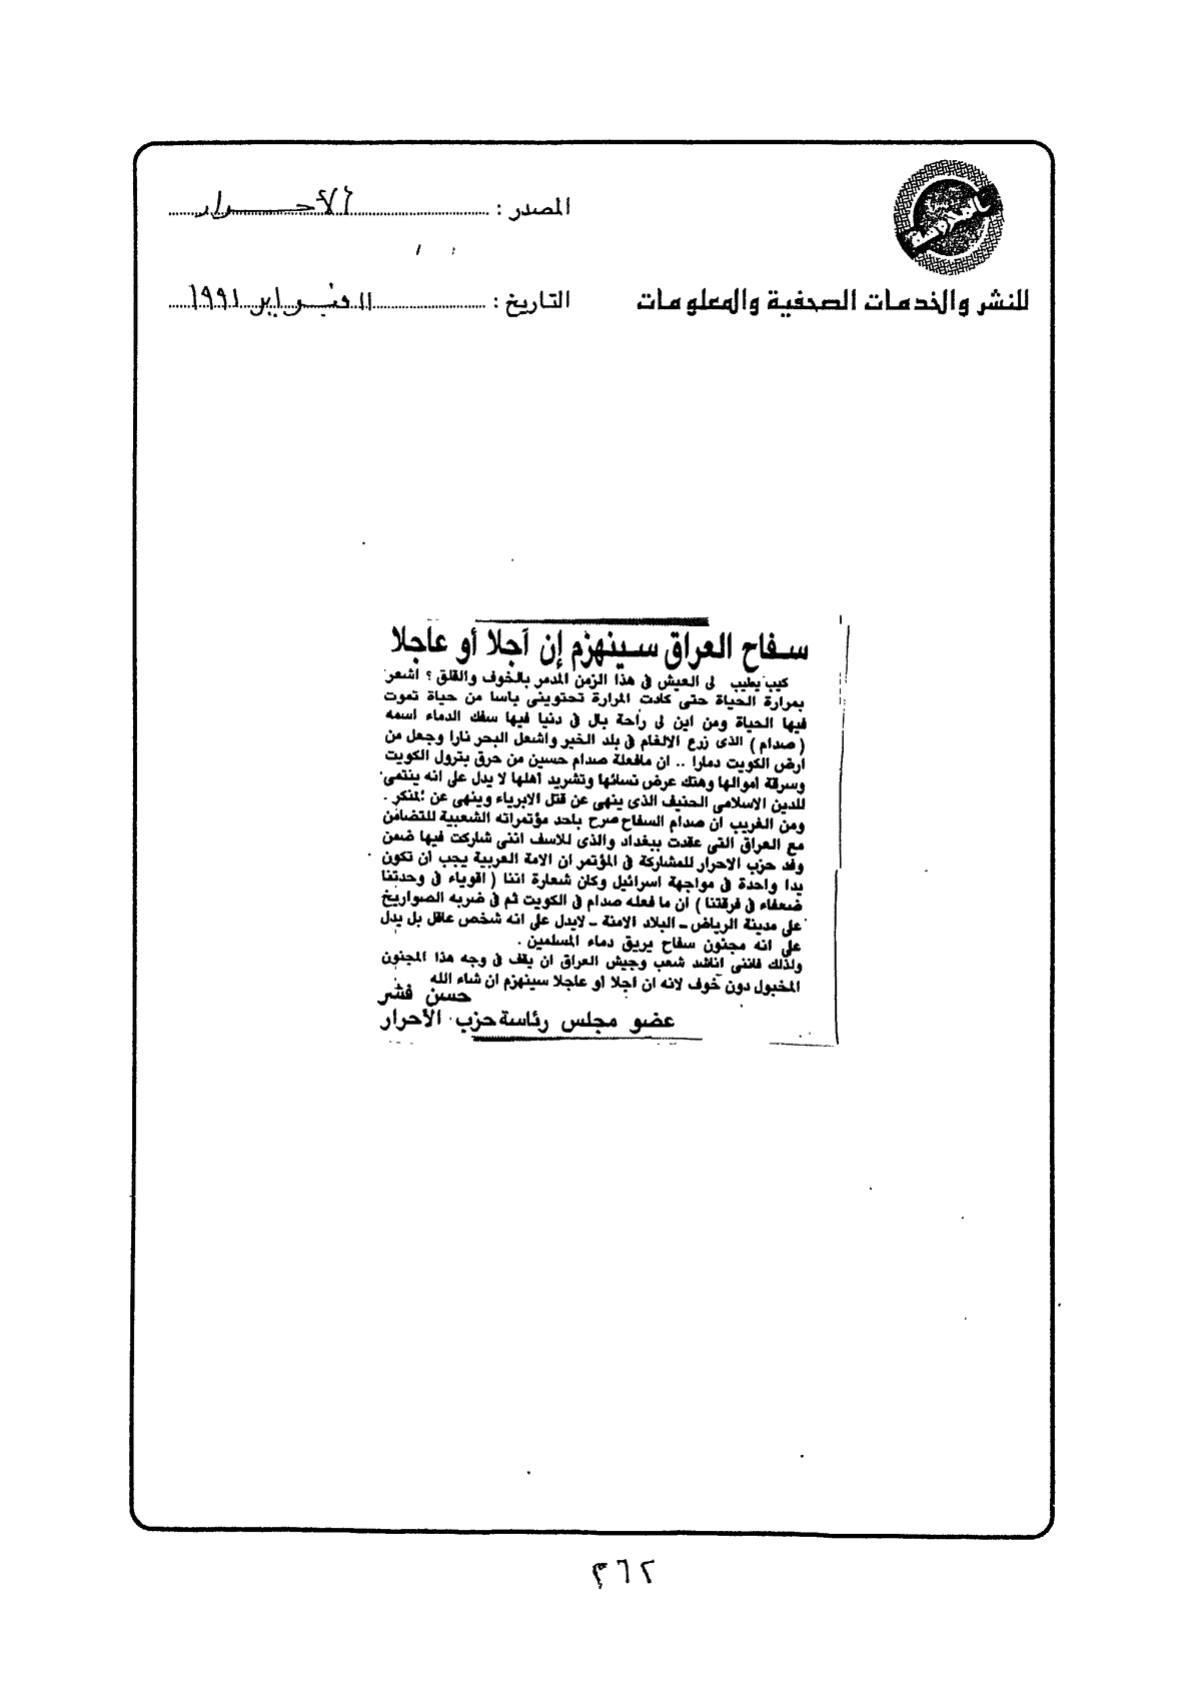 المصدر : الأحرار
للنشر والخدمات الصحفية والمعلومات
التاريخ : ١١ فبراير ١٩٩١
سفاح العراق سينهزم إن آجلا أو عاجلا
كيب يطيب لى العيش فى هذا الزمن المدمر بالخوف والقلق ؟ اشعر
بمرارة الحياة حتى كادت المرارة تحتوينى ياسا من حياة تموت
فيها الحياة ومن اين لى راحة بال فى دنيا فيها سفك الدماء اسمه
( صدام ) الذى زرع الالغام فى بلد الخير واشعل البحر نارا وجعل من
ارض الكويت دمارا .. ان مافعلة صدام حسين من حرق بترول الكويت
وسرقة اموالها وهتك عرض نسائها وتشريد اهلها لا يدل على انه ينتمى
للدين الاسلامى الحنيف الذى ينهى عن قتل الابرياء وينهى عن المنكر .
ومن الغريب ان صدام السفاح صرح باحد مؤتمراته الشعبية للتضامن
مع العراق التى عقدت ببغداد والذى للاسف اننى شاركت فيها ضمن
وفد حزب الاحرار للمشاركة فى المؤتمر ان الامة العربية يجب ان تكون
يدا واحدة فى مواجهة اسرائيل وكان شعارة اننا ( اقوياء فى وحدتنا
ضعفاء فى فرقتنا ) ان ما فعله صدام فى الكويت ثم فى ضربه الصواريخ
على مدينة الرياض ــ البلاد الامنة ــ لايدل على انه شخص عاقل بل يدل
على انه مجنون سفاح يريق دماء المسلمين .
ولذلك فاننى اناشد شعب وجيش العراق ان يقف فى وجه هذا المجنون
المخبول دون خوف لانه ان اجلا او عاجلا سينهزم ان شاء الله
حسن فشر
عضو مجلس رئاسة حزب الأحرار
٣٦٢